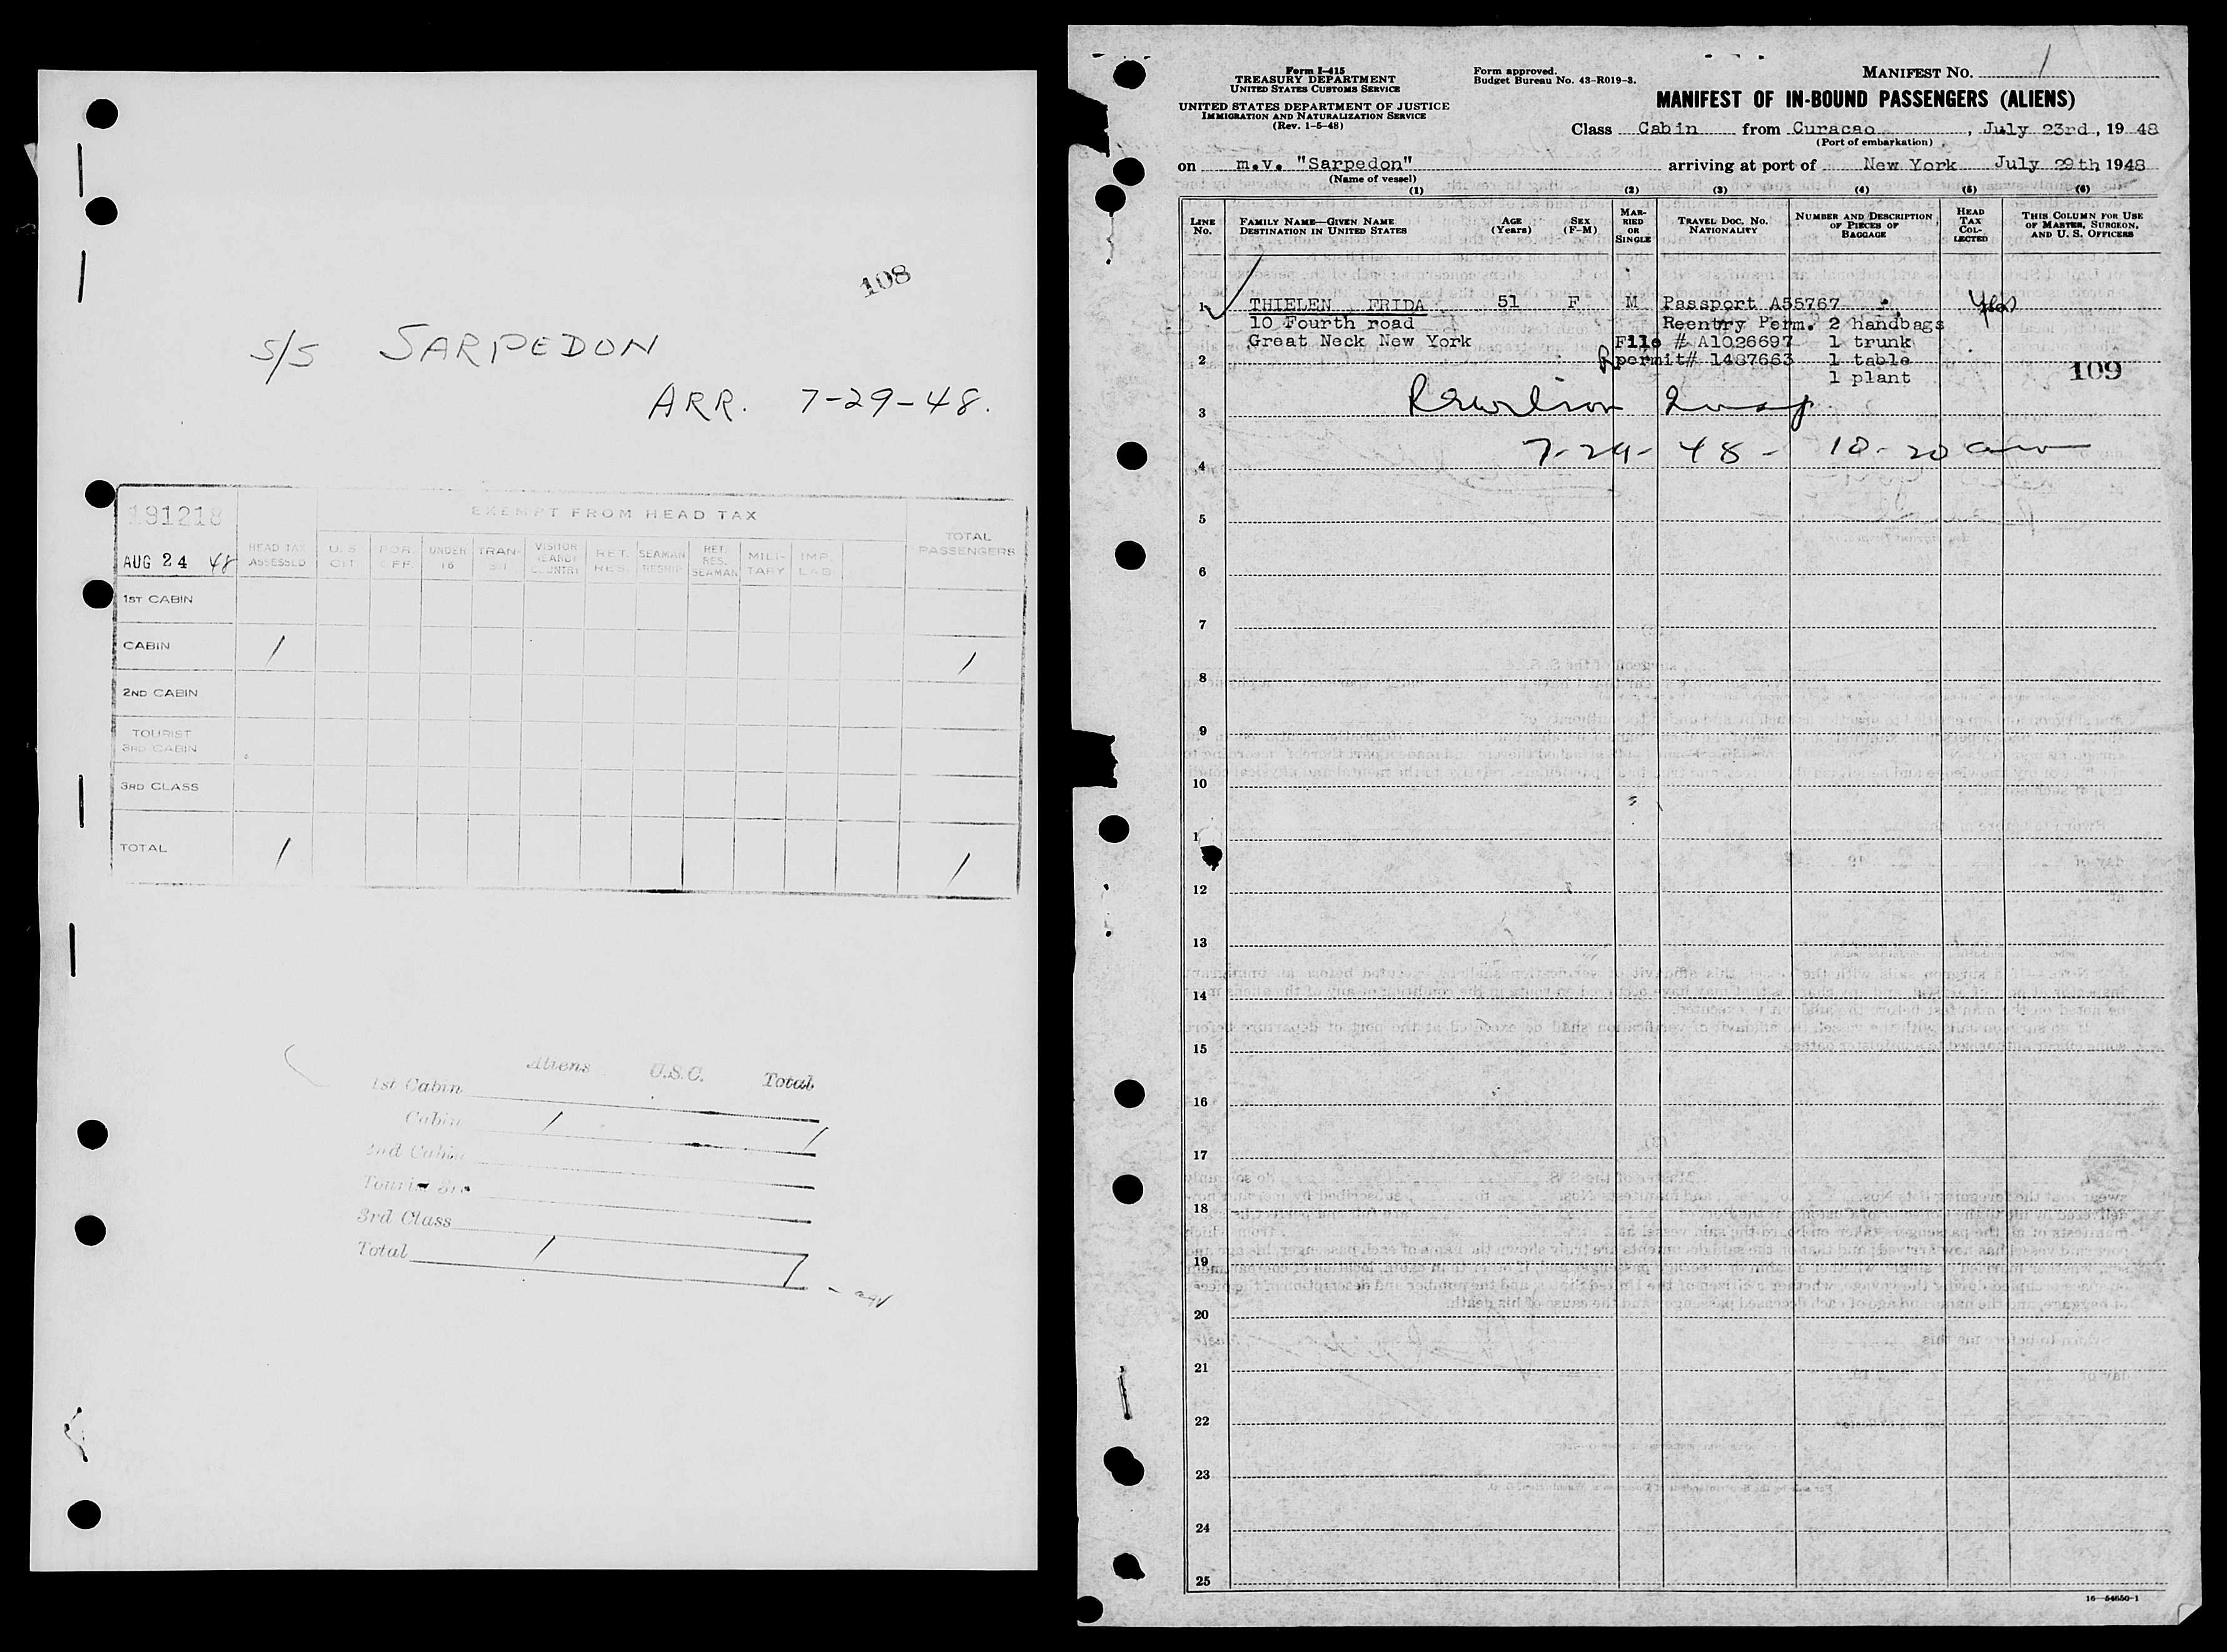 108
S/S SARPEDON
ARR. 7-29-48.
191218
AUG 24 48
EXEMPT FROM HEAD TAX
HEAD TAX ASSESSED
U.S. CIT
FOR. OFF.
UNDER 16
TRAN-SIT
VISITOR
COUNTRY
RET. RES.
SEAMAN
RET. RES. SEAMAN
MILI-TARY
IMP. LAB.
TOTAL PASSENGERS
1ST CABIN
CABIN / /
2ND CABIN
TOURIST
3RD CABIN
3RD CLASS
TOTAL / /
Aliens U.S.C. Total
1st Cabin
Cabin / /
2nd Cabin
3rd Class
Total / /
Form I-415
TREASURY DEPARTMENT
UNITED STATES CUSTOMS SERVICE
UNITED STATES DEPARTMENT OF JUSTICE
IMMIGRATION AND NATURALIZATION SERVICE
(Rev. 1-5-48)
Form approved.
Budget Bureau No. 43-R019-3.
MANIFEST NO. 1
MANIFEST OF IN-BOUND PASSENGERS (ALIENS)
Class Cabin from Curacao, July 23rd, 1948
(Port of embarkation)
on m.v. "Sarpedon" arriving at port of New York July 29th 1948
(Name of vessel)
(1) (2) (3) (4) (5) (6)
LINE NO.
FAMILY NAME—GIVEN NAME
DESTINATION IN UNITED STATES
AGE (Years)
SEX (F-M)
MAR-RIED OR SINGLE
TRAVEL DOC. NO. NATIONALITY
NUMBER AND DESCRIPTION OF PIECES OF BAGGAGE
HEAD TAX COL-LECTED
THIS COLUMN FOR USE OF MASTER, SURGEON, AND U. S. OFFICERS
1 THIELEN FRIDA 51 F M Passport A55767 Yes
10 Fourth road Reentry Perm. 2 handbags
Great Neck New York File # A1026697 1 trunk
2 permit# 1487663 1 table
1 plant
109
3
4 7-29-48- 10-20 am
5
6
7
8
9
10
12
13
14
15
16
17
18
19
20
21
22
23
24
25
16—54650-1